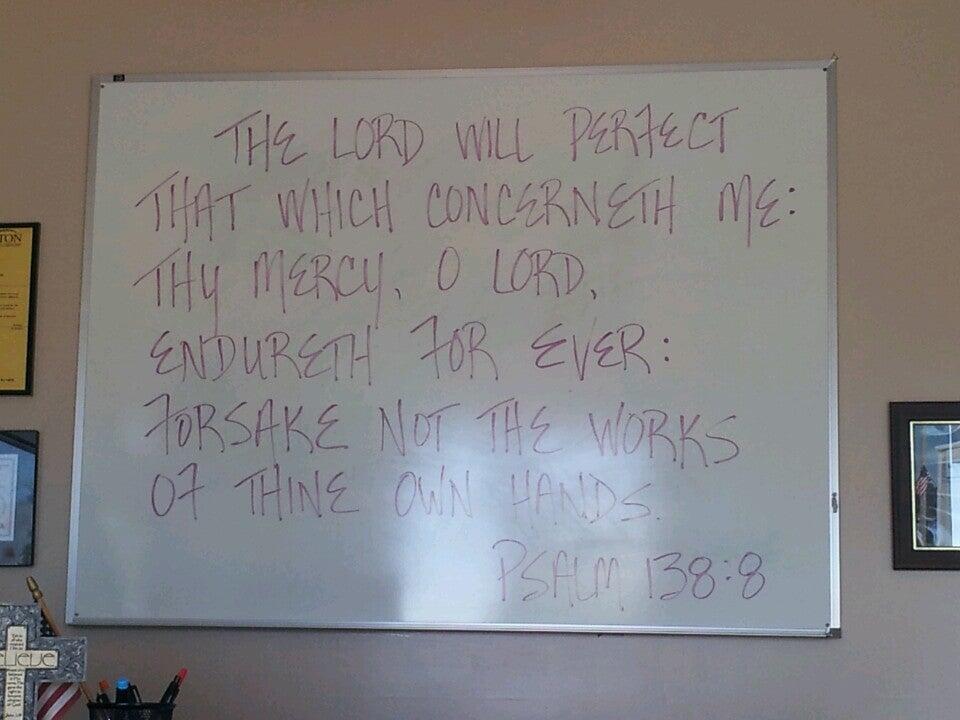 THE LORD WILL PERFECT
THAT WHICH CONCERNETH ME:
THY MERCY, O LORD,
ENDURETH FOR EVER:
FORSAKE NOT THE WORKS
OF THINE OWN HANDS.
PSALM 138:8
TON
ELIEVE